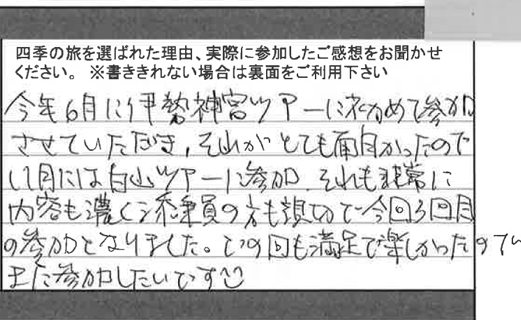 四季の旅を選ばれた理由、実際に参加したご感想をお聞かせ
ください。 ※書ききれない場合は裏面をご利用下さい
今年6月に伊勢神宮ツアーに初めて参加
させていただき，それがとても面白かったので
11月には白山ツアーに参加，それも非常に
内容も濃く添乗員の方も親切で今回3回目
の参加となりました。どの回も満足で楽しかったので
また参加したいです